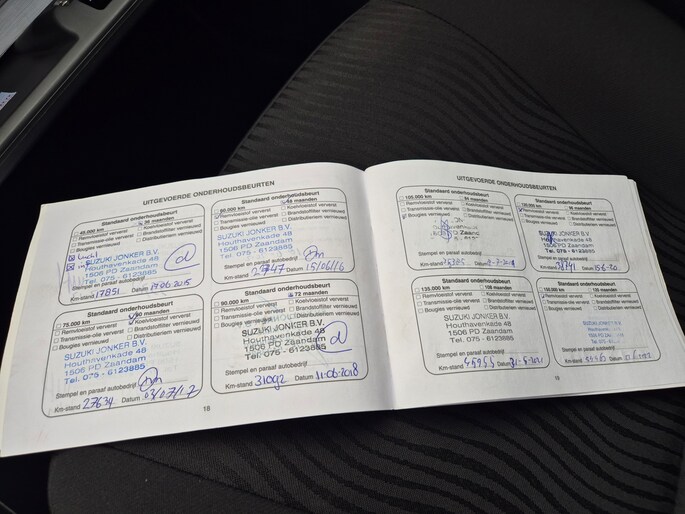 UITGEVOERDE ONDERHOUDSBEURTEN
Standaard onderhoudsbeurt
45.000 km
36 maanden
Remvloeistof ververst
Koelvloeistof ververst
Transmissie-olie ververst
Brandstoffilter vernieuwd
Bougies vernieuwd
Distributieriem vernieuwd
SUZUKI JONKER B.V.
Houthavenkade 48
1506 PD Zaandam
Tel. 075 - 6123885
Stempel en paraaf autobedrijf
Km-stand 17851 Datum 19.06.2015
Standaard onderhoudsbeurt
60.000 km
48 maanden
Remvloeistof ververst
Koelvloeistof ververst
Transmissie-olie ververst
Brandstoffilter vernieuwd
Bougies vernieuwd
Distributieriem vernieuwd
SUZUKI JONKER B.V.
Houthavenkade 48
1506 PD Zaandam
Tel. 075 - 6123885
Stempel en paraaf autobedrijf
Km-stand Datum 15/06/16
Standaard onderhoudsbeurt
75.000 km
60 maanden
Remvloeistof ververst
Koelvloeistof ververst
Transmissie-olie ververst
Brandstoffilter vernieuwd
Bougies vernieuwd
Distributieriem vernieuwd
SUZUKI JONKER B.V.
Houthavenkade 48
1506 PD Zaandam
Tel. 075 - 6123885
Stempel en paraaf autobedrijf
Km-stand 27634 Datum 03/07/17
Standaard onderhoudsbeurt
90.000 km
72 maanden
Remvloeistof ververst
Koelvloeistof ververst
Transmissie-olie ververst
Brandstoffilter vernieuwd
Bougies vernieuwd
Distributieriem vernieuwd
SUZUKI JONKER B.V.
Houthavenkade 48
1506 PD Zaandam
Tel. 075 - 6123885
Stempel en paraaf autobedrijf
Km-stand 31092 Datum 11-06-2018
18
UITGEVOERDE ONDERHOUDSBEURTEN
Standaard onderhoudsbeurt
105.000 km
84 maanden
Remvloeistof ververst
Koelvloeistof ververst
Transmissie-olie ververst
Brandstoffilter vernieuwd
Bougies vernieuwd
Distributieriem vernieuwd
Stempel en paraaf autobedrijf
Km-stand Datum
Standaard onderhoudsbeurt
120.000 km
96 maanden
Remvloeistof ververst
Koelvloeistof ververst
Transmissie-olie ververst
Brandstoffilter vernieuwd
Bougies vernieuwd
Distributieriem vernieuwd
SUZUKI JONKER B.V.
Houthavenkade 48
1506 PD Zaandam
Tel. 075 - 6123885
Stempel en paraaf autobedrijf
Km-stand Datum 15-6-20
Standaard onderhoudsbeurt
135.000 km
108 maanden
Remvloeistof ververst
Koelvloeistof ververst
Transmissie-olie ververst
Brandstoffilter vernieuwd
Bougies vernieuwd
Distributieriem vernieuwd
SUZUKI JONKER B.V.
Houthavenkade 48
1506 PD Zaandam
Tel. 075 - 6123885
Stempel en paraaf autobedrijf
Km-stand Datum
Standaard onderhoudsbeurt
150.000 km
120 maanden
Remvloeistof ververst
Koelvloeistof ververst
Transmissie-olie ververst
Brandstoffilter vernieuwd
Bougies vernieuwd
Distributieriem vernieuwd
SUZUKI JONKER B.V.
Houthavenkade 48
1506 PD Zaandam
Stempel en paraaf autobedrijf
Km-stand Datum
19